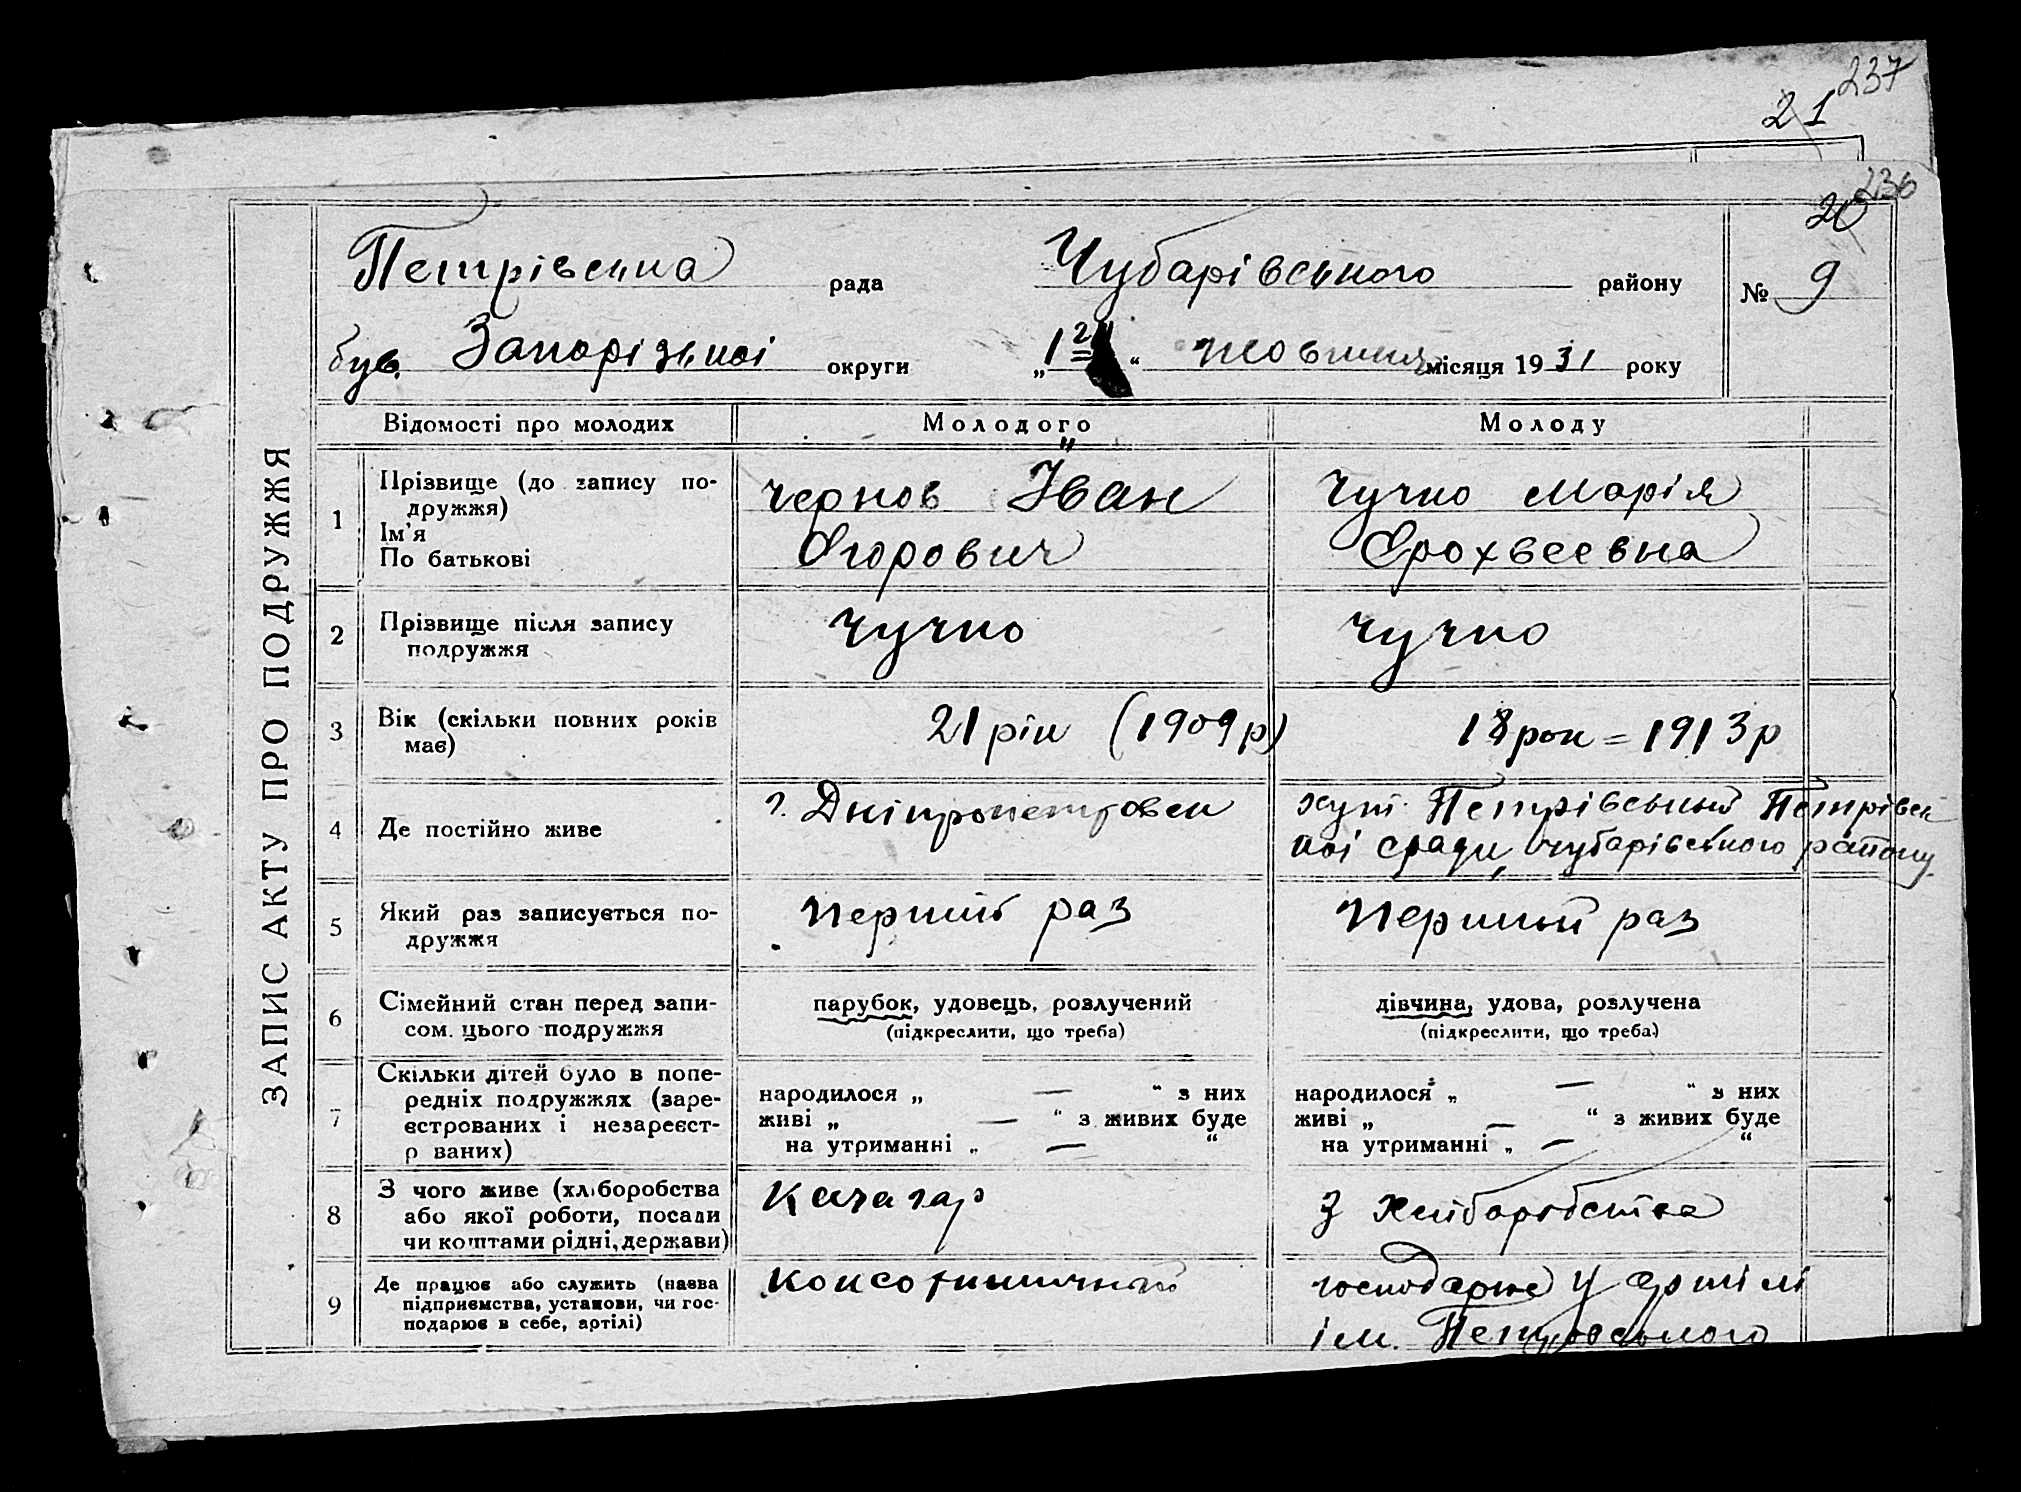 237
21
236
20
ЗАПИС АКТУ ПРО ПОДРУЖЖЯ
Петрівська рада Чубарівського району № 9
був. Запорізької округи „12“ жовтня місяця 1931 року
Відомості про молодих Молодого Молоду
1 Прізвище (до запису по-
дружжя)
Ім'я
По батькові
Чернов Іван
Єгорович
Чучко Марія
Єрохвеевна
2 Прізвище після запису
подружжя
Чучко
Чучко
3 Вік (скільки повних років
має)
21 рік (1909р)
18 рок = 1913р
4 Де постійно живе
г. Дніпропетровск
хут. Петрівський Петрівсь
кої сради, чубарівського району
5 Який раз записується по-
дружжя
Перший раз
Перший раз
6 Сімейний стан перед запи-
сом цього подружжя
парубок, удовець, розлучений
(підкреслити, що треба)
дівчина, удова, розлучена
(підкреслити, що треба)
7 Скільки дітей було в попе-
редніх подружжях (заре-
єстрованих і незареєст-
р ваних)
народилося „ — “ з них
живі „ — “ з живих буде
на утриманні „ — “
народилося „ — “ з них
живі „ — “ з живих буде
на утриманні „ — “
8 З чого живе (хліборобства
або якої роботи, посади
чи коштами рідні, держави)
Качагар
З хліборобства
9 Де працює або служить (назва
підприємства, установи, чи гос-
подарює в себе, артілі)
господарює у артілі
ім. Петровського